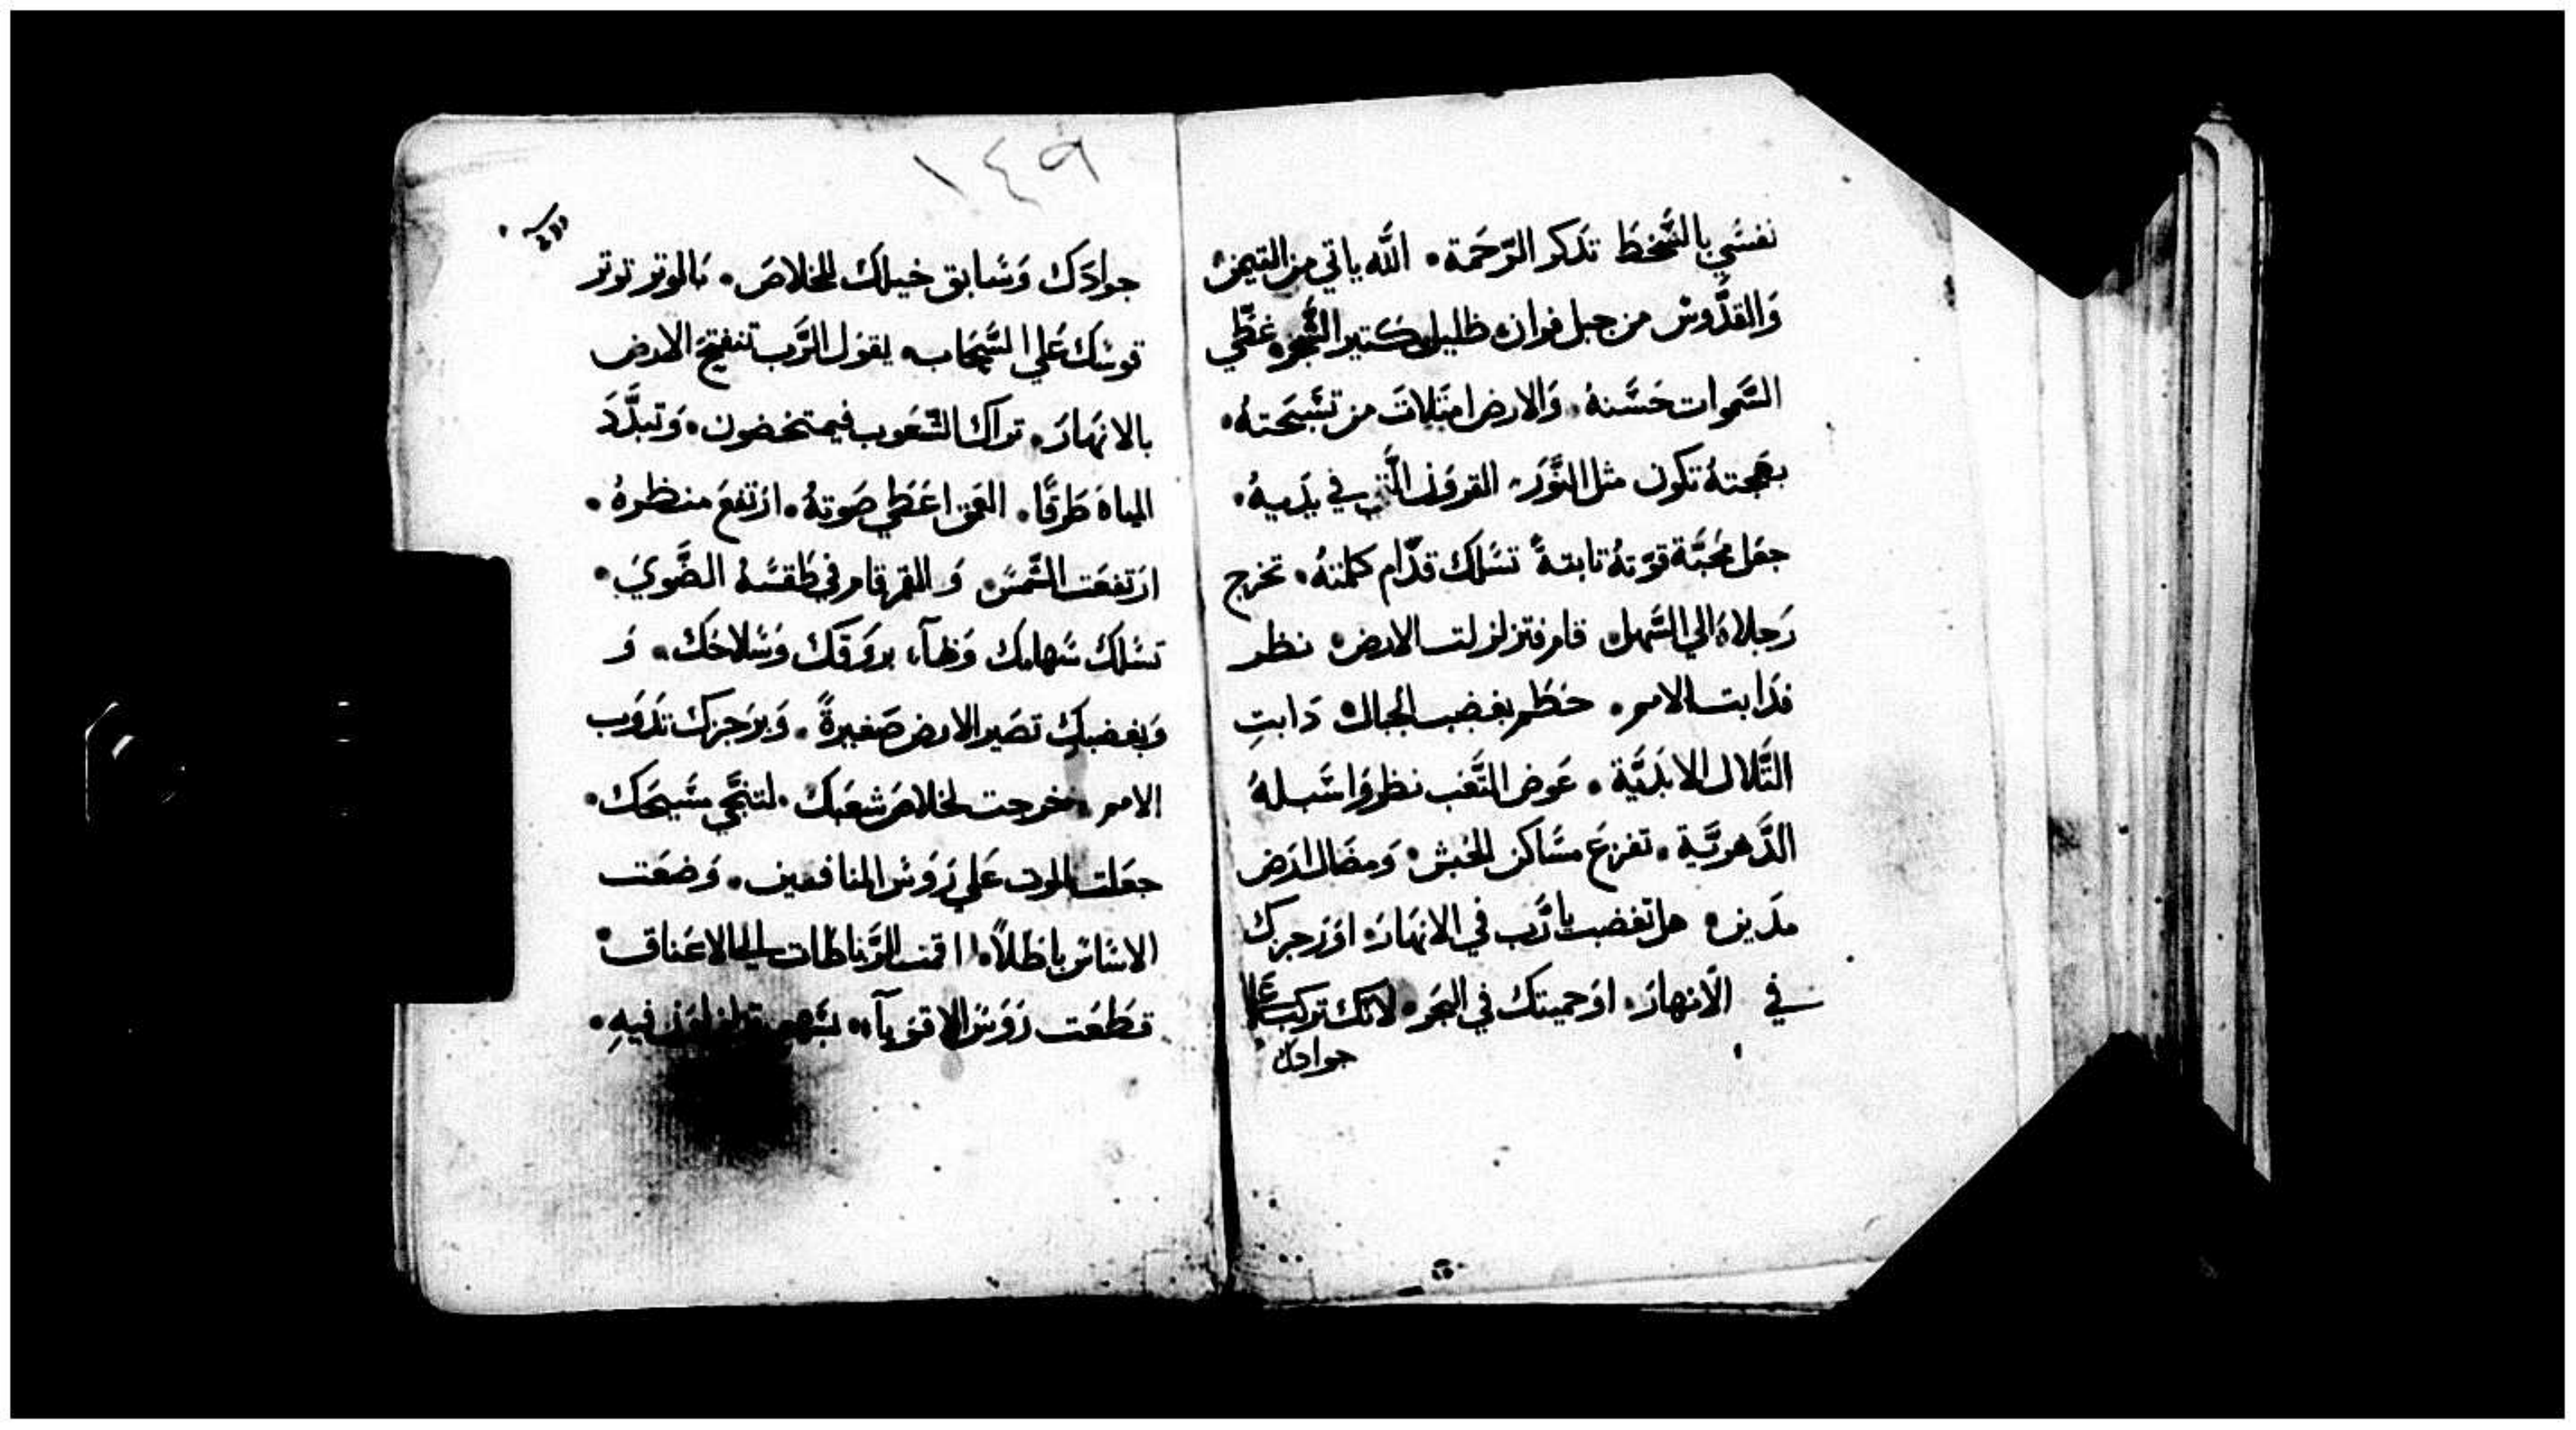 نفسَي بالسَّخطَ تدكر الرّحَمة • الله ياتي من التيمن
وَالقدُّوسْ من جبل فوان • ظليل كتير الشَّجر • غطَّي
السَّموات حَسَّنهُ • وَالارض امتَلات من تسَّبحَتهُ •
بهجتهُ تكون مثل النَّورَ • القرون الَّتي في يدَيهُ •
جعَل محَبَّة قوّتهُ تابتةً تسَلك قدّام كلمتهُ • تخرج
رَجلاهُ الي السَّهل • قام فتزلزلت الارض • نظر
فدَابت الامم • حَطَم بغضب الجبال • دَابتِ
التَّلال الابدَيَّة • عَوض التَّعَب نظروَا سَّبلهُ
الدَّهريَّة • تفزعَ مسَاكن الحبش • وَمضَال ارَض
مدَين • هل تغضب يارَّب في الانهَارَ • اوَ زجرك
في الَانهارَ • اوَ حميتك في البحَر • لانّك تركب عَلي
جوادك
١٤٩
جوادَك وَسَّابق خيلك للخلاصَ • بالوتر توتر
قوسَك عَلي السَّحَاب • يقوَل الرَّب تنفتحَ الارض
بالانهَارَ • تراك الشّعَوب فيمتخضون • وَتبدَّدَ
المياهَ طَرقًا • العمَق اعَطَي صَوتهُ • ارَتفعَ منظرهُ •
ارَتفعَت الشَّمسَ • وَ القمَر قام في طَقسَهُ الضَّويَ •
تسَلك سَهامك وَضَآء بروَقَك وَسَلاحَك • وَ
وَبغضبك تصَير الارض صَغيرةً • وَبزَجرَك تدَوَب
الامم • خرجت لخلاصَ شعَبك • لتنجَّي مسَّيحَك •
جعَلت الموت عَلي رَوَسَ المنافقين • وَضعَت
الاسَاسَ باطَلًا • اقمت الرَّباطَات الي الاعَناق •
قطَعَت رَوَسَ الاقوَيآء • بسَّهو فيهِ •